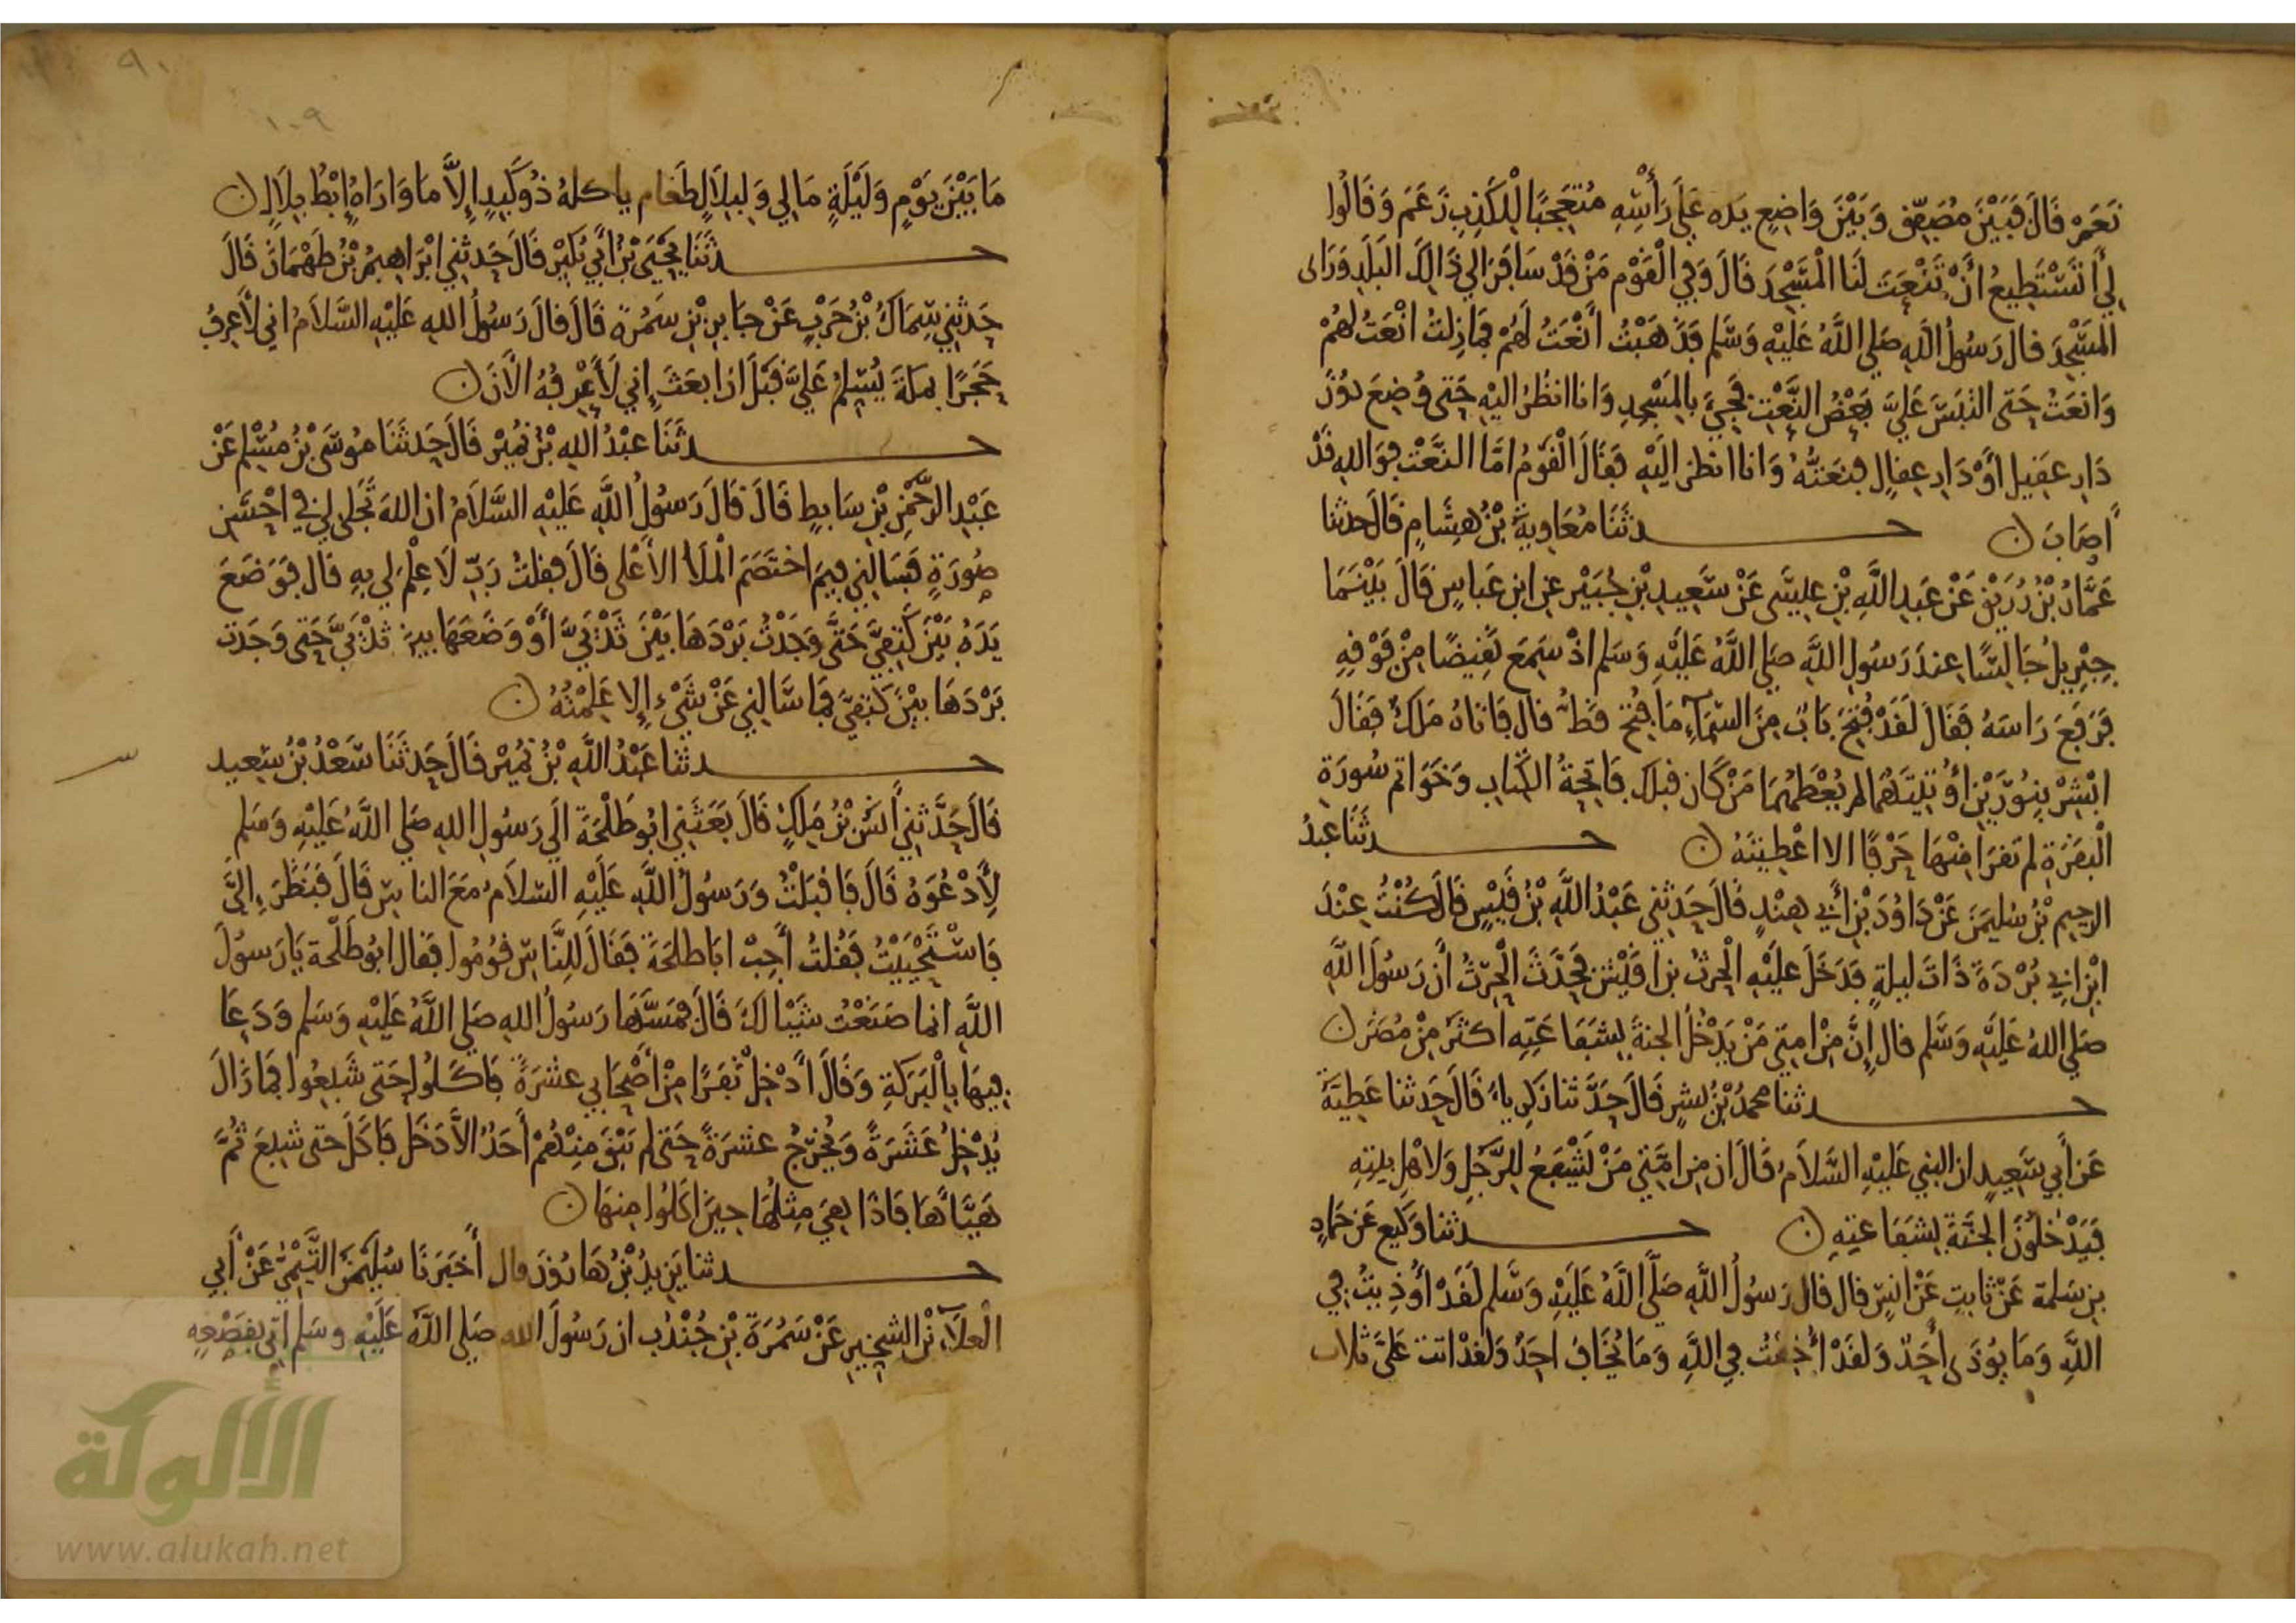 نَعَمْ قَالَ فَبَيْنَ مُصَفِّقٍ وَبَيْنَ وَاضِعٍ يَدَه عَلَى رَأْسِهِ مُتَعَجِّبًا لِلْكَذِبِ زَعَمَ وَقَالُوا
لِي أَتَسْتَطِيعُ أَنْ تَنْعَتَ لَنَا الْمَسْجِدَ قَالَ وَفِي الْقَوْمِ مَنْ قَدْ سَافَرَ الي ذَالِكَ الْبَلَدِ وَرَاى
الْمَسْجِدَ قال رَسُولُ اللهِ صَلي اللَّهُ عَلَيْهِ وَسَلم فَذَهَبْتُ أَنْعَتُ لَهُمْ فَمَا زِلتُ انْعَتُ لهُمْ
وَانعَتُ حَتى التَبَسَ عَلَيَّ بَعْضُ النَّعْتِ فَجِيَ بِالمَسْجِدِ وَانا انظُرُ اليْهِ حَتى وُضِعَ دُوْنَ
دَارِ عقِيلٍ أَوْ دَارِ عِقالٍ فنَعَتُّهُ وَانا انظر الَيْهِ فَقَالَ الْقَوْمُ امَّا النَّعْتُ فوَاللهِ قَدْ
أصَابَ ن حدثَنَا مُعَاوِيةُ بْنُ هِشَامٍ قَالَ حدثنا
عَمَّارُ بْنُ رُزَيْقٍ عَنْ عَبدِ اللَّهِ بْنِ عِيسَى عَنْ سَعِيدِ بْنِ جُبَيْرٍ عنِ ابنِ عَباسٍ قَالَ بَيْنَمَا
جِبْرِيلُ جَالِسًا عِندَ رَسُولِ اللَّهِ صَلي اللَّهُ عَلَيْهِ وَسَلم اذْ سَمِعَ نَقِيضًا مِنْ فَوْقِهِ
فَرَفَعَ رَاسَهُ فَقَالَ لَقَدْ فُتِحَ بَابٌ مِنَ السَّمَآءِ مَا فُتِحَ قَطُّ قال فَاتاهُ مَلَكٌ فَقَالَ
ابْشِرْ بِنُوْرَيْنِ أُوتِيتَهُمَا لم يُعْطَهُمَا مَنْ كَان قبلَكَ فَاتِحَةُ الكِتَابِ وَخَوَاتم سُورَةِ
الْبَقَرَةِ لم تَقرَا مِنْهَا حَرْفًا الا اعْطِيتَهُ ن حدثَنَا عبدُ
الرحِيمِ بْنُ سُليمَنَ عَنْ دَاوُدَ بْنِ أَبي هِنْدٍ قَالَ حَدثني عَبْدُ اللَّهِ بْنُ قَيْسٍ قَالَ كُنْتُ عِنْدَ
ابْنِ ابي بُرْدَةَ ذَاتَ ليلةٍ فَدَخَلَ عَلَيْهِ الْحرثُ بنُ اقَيْشٍ فَحَدَّثَ الْحرثُ أَن رَسُولَ اللَّهِ
صَلي اللهُ عَلَيْهِ وَسَلم قال إِنَّ مِنْ امتِي مَنْ يَدْخُلُ الجنةَ بِشَفَاعَتِهِ اكثَرَ مِنْ مُضَرَ ن
حدثنا محمدُ بْنُ بِشرٍ قَالَ حَدَّثنا زَكرِياءُ قَالَ حَدثنا عَطِيَّةُ
عَن أَبي سَعِيدٍ ان النبي عَليْهِ السَّلاَمُ قَالَ ان مِن امَّتِي مَنْ يَشْفَعُ لِلرَّجُلِ وَلاهْلِ بيتِهِ
فَيَدْخُلُونَ الجَنَّةَ بِشفَاعتِهِ ن حدثنا وَكيع عَن حَمادِ
بنِ سَلمة عَنْ ثابتٍ عَنْ انسٍ قال قال رَسُولُ اللَّهِ صَلَّى اللَّهُ عَلَيْهِ وَسَلم لَقَدْ أُوذِيتُ فِي
اللَّهِ وَمَا يُوْذَى أَحَدٌ وَلقَدْ أُخِفْتُ في اللَّهِ وَمَا يُخَافُ احَدٌ وَلقدْ اتت عَلَيَّ ثلاث
٩٠
١٠٩
مَا بَيْنَ يَوْمٍ وَلَيْلَةٍ مَا لِي وَلِبِلاَلٍ طَعَام ياكلهُ ذُو كَبِدٍ إِلاَّ مَا وَارَاهُ إِبْطُ بِلاَلٍ ن
حدثَنَا يَحْيَى بْنُ أَبي بُكَيْرٍ قَالَ حَدثني ابْرَاهِيمُ بْنُ طَهْمَانَ قَالَ
حَدثني سِمَاكُ بْنُ حَرْبٍ عَنْ جَابِرِ بْنِ سَمُرَةَ قَالَ قَالَ رَسُولُ اللهِ عَلَيْهِ السَّلاَمُ اني لأَعْرِفُ
حَجَرًا بمكةَ يُسَلِمُ عَلَيَّ قَبْلَ ان ابعَثَ إِني لَأَعْرِفُهُ الْأنَ ن
حدثَنَا عبْدُ اللهِ بْنُ نُمَيْرٍ قَالَ حَدثَنَا مُوسَى بْنُ مُسْلِمٍ عَنْ
عَبْدِ الرَّحْمَنِ بْنِ سَابِطٍ قَالَ قَالَ رَسُولُ اللَّهِ عَلَيْهِ السَّلاَمُ ان اللهَ تَجَلى لِي في احْسَنِ
صُورَةٍ فَسَالَنِي فِيمَ اختَصَمَ الْمَلأُ الاَعْلى قَالَ فقلتُ رَبِّ لَا عِلْمَ لي بِهِ قَال فَوَضَعَ
يَدَهُ بَيْنَ كَتِفَيَّ حَتَّى وَجَدْتُ بَرْدَهَا بَيْنَ ثَدْيَيَّ أَوْ وَضَعَهَا بينَ ثَدْيَيَّ حَتى وَجَدتُ
بَرْدَهَا بَيْنَ كَتِفَيَّ فَمَا سَالني عَنْ شَيْءٍ إلا عَلِمْتُهُ ن
حدثنا عَبْدُ اللَّهِ بْنُ نُمَيْرٍ قَالَ حَدثَنَا سَعْدُ بْنُ سَعِيد
قَالَ حَدَّثني أَنَسُ بْنُ مَلِكٍ قَالَ بَعَثَني ابُو طَلْحَةَ الَي رَسُولِ اللهِ صَلي اللَّهُ عَلَيْهِ وَسَلم
لأَدْعُوَهُ قَالَ فَاقبَلْتُ وَرَسُولُ اللَّهِ عَلَيْهِ السَّلاَمُ مَعَ الناسِ قَالَ فَنَظَرَ إِلَيَّ
فَاسْتَحْيَيْتُ فَقُلتُ أَجِبْ ابَا طلحَةَ فَقَالَ لِلنَّاسِ قُومُوا فقال ابُو طَلْحة يَا رَسُولَ
اللَّهِ انما صَنَعْت شَيْا لَكَ قَالَ فمَسَّهَا رَسُولُ اللهِ صَلي اللَّهُ عَلَيْهِ وَسَلم وَدَعَا
فِيهَا بِالْبَرَكةِ وَقَالَ أَدْخِلْ نَفَرًا مِنْ أَصْحَابي عشرَةً فَاكَلُوا حَتى شَبِعُوا فَمَا زَالَ
يُدْخِلُ عَشَرَةً وَيُخْرِجُ عشرَةً حَتى لم يَبْقَ مِنْهُمْ أَحَدٌ الاَّ دَخَلَ فَاكَلَ حتى شَبِعَ ثُمَّ
هَيَّاهَا فَاذَا هِيَ مِثلُهَا حِينَ اكَلُوا مِنهَا ن
حدثنا يَزِيدُ بْنُ هَارُونَ قال أَخبَرَنَا سُلَيْمَنُ التَّيْمِيُّ عَنْ أَبي
الْعَلآءِ بْنِ الشِخِيرِ عَنْ سَمُرَةَ بْنِ جُنْدُبٍ ان رَسُولَ الله صَلي اللَّهُ عَلَيْهِ وسَلم أُتِيَ بِقَصْعَةٍ
الألوكة
www.alukah.net